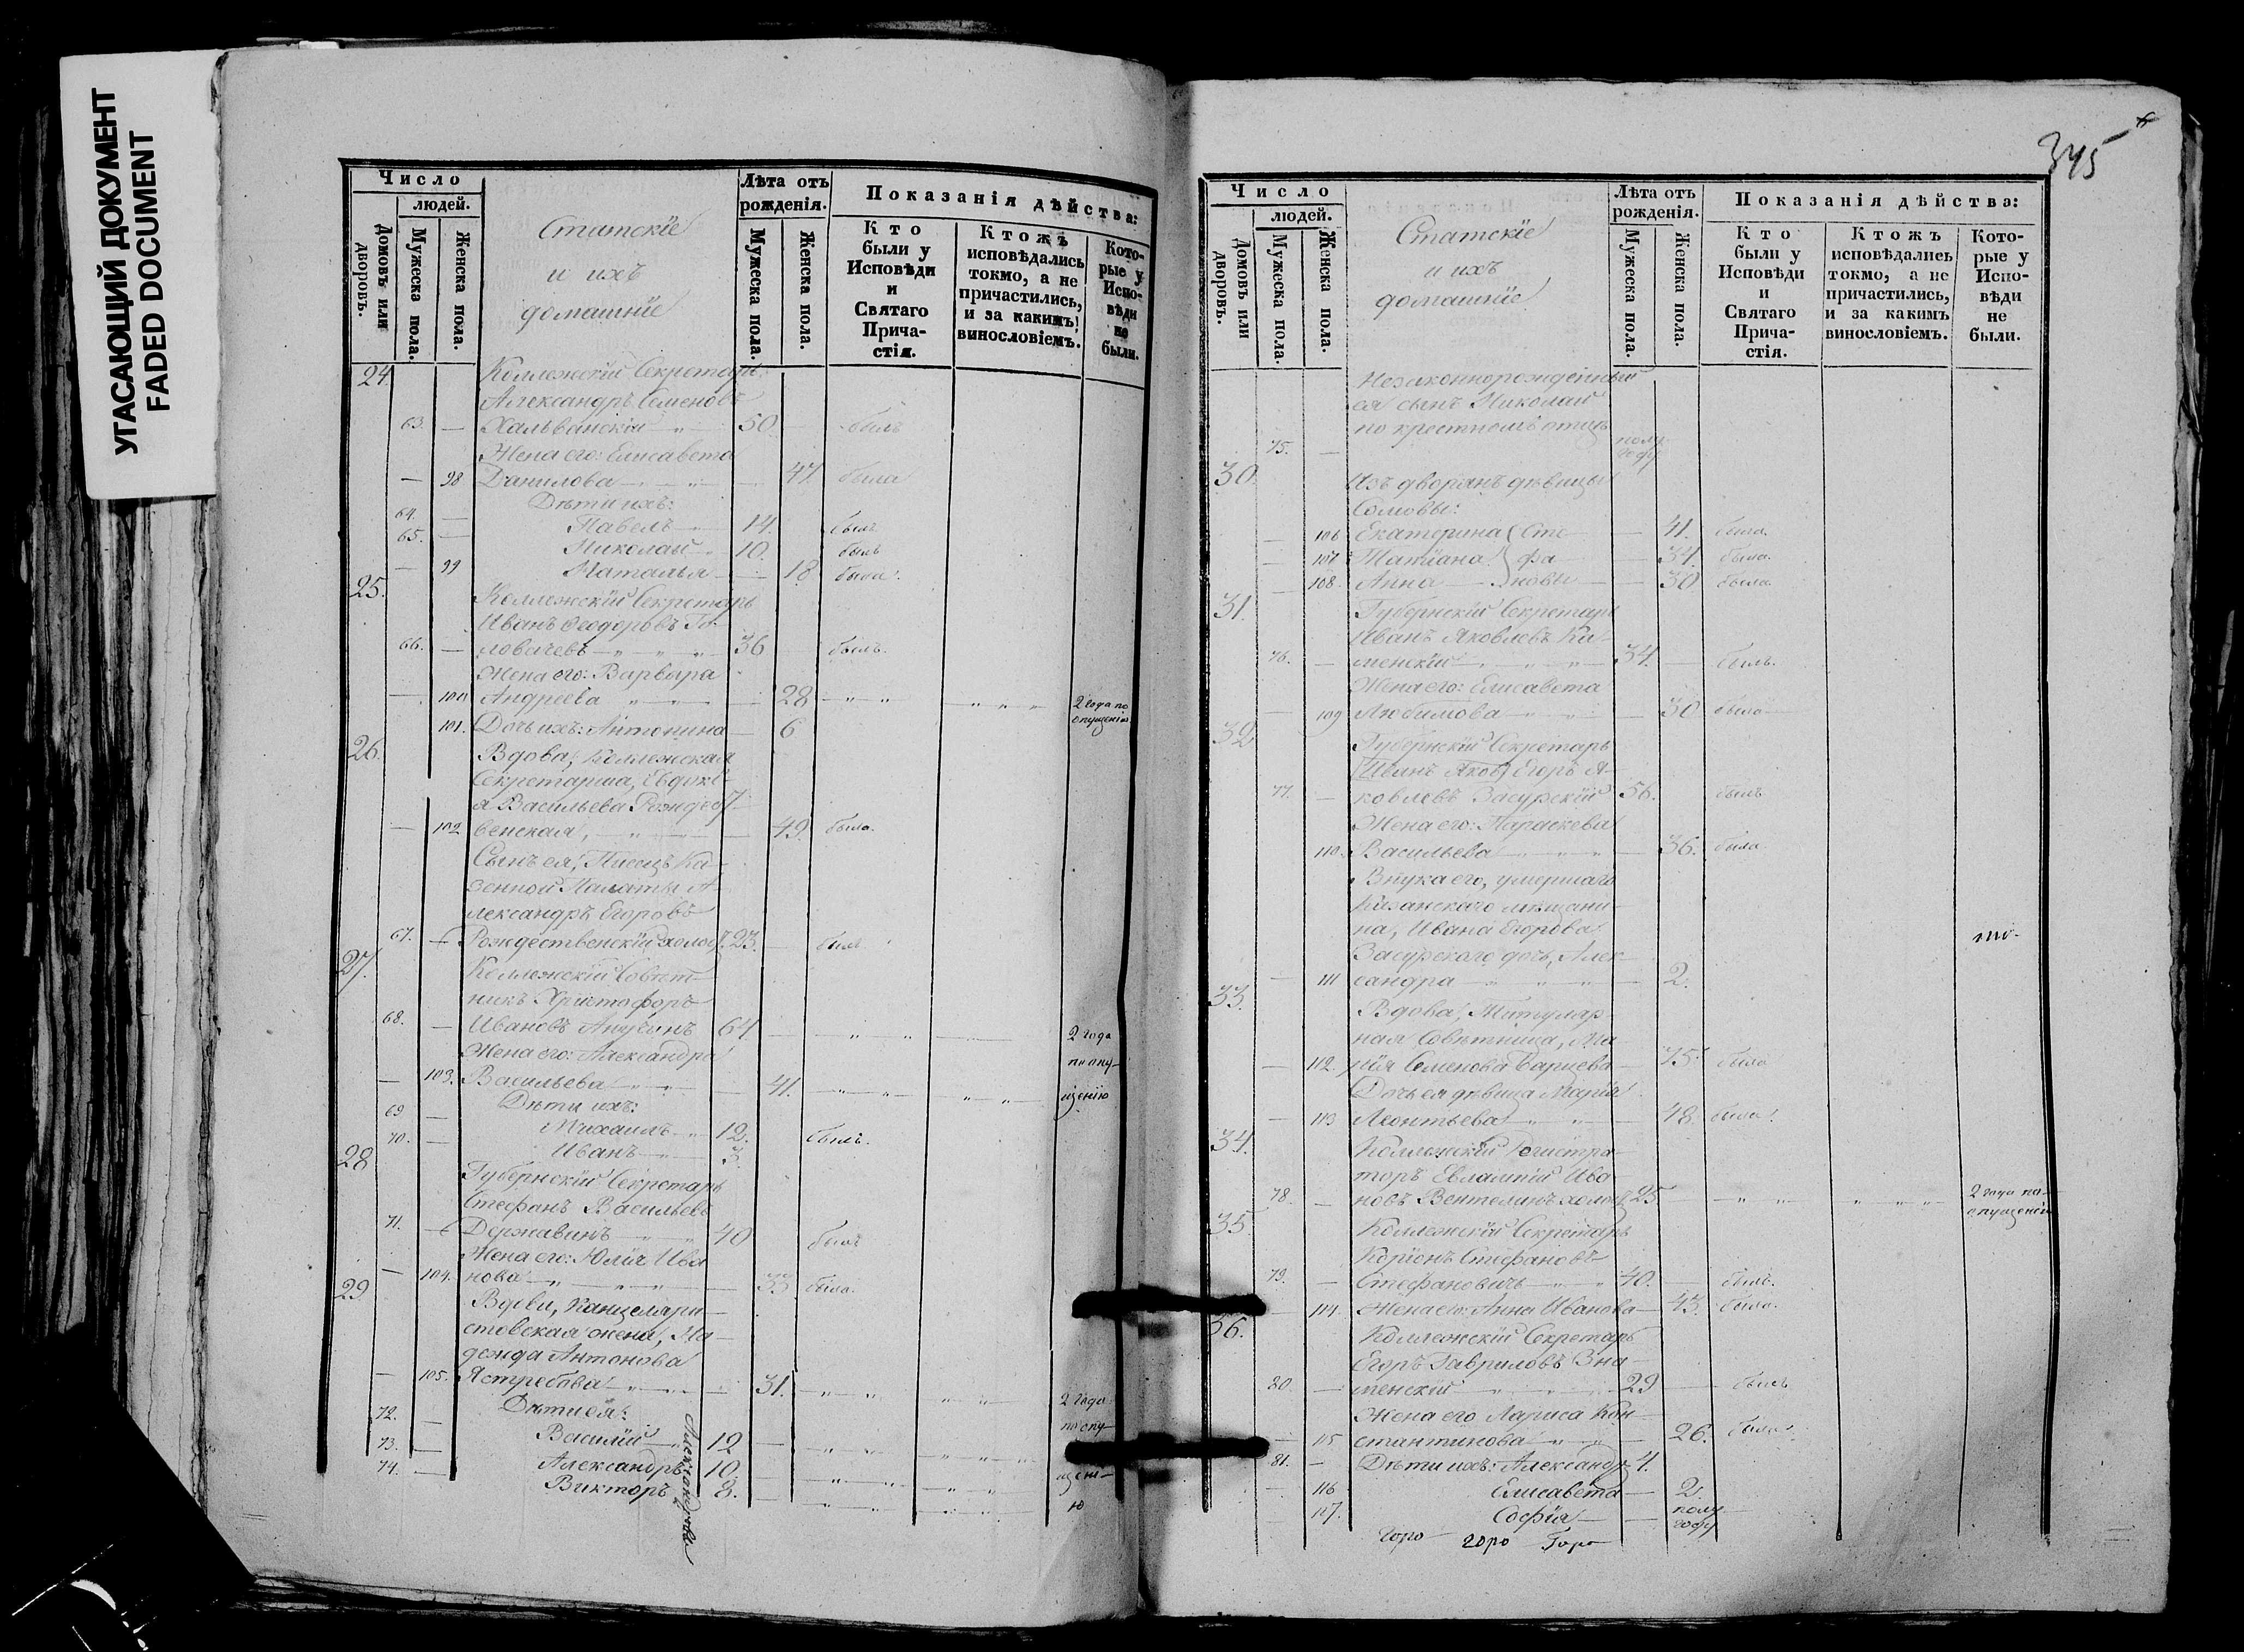 УГАСАЮЩИЙ ДОКУМЕНТ
FADED DOCUMENT
Число
людей.
Домовъ или дворовъ.
Мужеска пола.
Женска пола.
Статскїе
и ихъ
домашнїе
Лѣта отъ рожденія.
Мужеска пола.
Женска пола.
Показанія дѣйства:
Кто были у Исповѣди и Святаго Прича-стія.
Ктожъ исповѣдались токмо, а не причастились, и за какимъ винословіемъ.
Кото-рые у Испо-вѣди не были.
24 Коллежскїй Секретарь
Александръ Семеновъ
63. — Хальванскїй 50. былъ
Жена его: Елисавета
— 98 Данилова 47. была
Дѣти ихъ:
64. — Павелъ 14. былъ
65. — Николай 10. былъ
— 99 Наталья 18 была.
25. Коллежскїй Секретарь
Иванъ Ѳеодоровъ Го-
66. — ловачевъ 36 былъ.
Жена его: Варвара
— 100 Андреева 28 2 года по опущенїю
101. Дочь ихъ: Антонина 6
26. Вдова, Коллежская
Секретарша, Евдокї-
я Васильева Рождест-
— 102 венская, 49. была.
Сынъ ея, Писецъ Ка-
зенной Палаты А-
лександръ Егоровъ
67. — Рождественскїй холос. 23. былъ
27. Коллежскїй Совѣт-
никъ Христофоръ
68. — Ивановъ Анучинъ 64. 2 года
Жена его: Александра по опу-
— 103. Васильева 41. щенїю
Дѣти ихъ:
69 — Михаилъ 12. былъ.
70. — Иванъ 3.
28 Губернскїй Секретарь
Стефанъ Васильевъ
71. — Державинъ 40 былъ
Жена его: Юлїя Ива
— 104. нова 33 была.
29 Вдова, Канцеляри-
стовская жена, На-
дежда Антонова
— 105. Ястребова 31. 2 года
Дѣти ея: по опу-
72. — Василїй 12
73. — Александръ 10. щенї-
74. — Викторъ 8. ю
Александровы
345
Число
людей.
Домовъ или дворовъ.
Мужеска пола.
Женска пола.
Статскїе
и ихъ
домашнїе
Лѣта отъ рожденія.
Мужеска пола.
Женска пола.
Показанія дѣйства:
Кто были у Исповѣди и Святаго Прича-стія.
Ктожъ исповѣдались токмо, а не причастились, и за какимъ винословіемъ.
Кото-рые у Испо-вѣди не были.
Незаконнорожденный
ея сынъ Николай
по крестномъ отцѣ
75. — полу году
30 Изъ дворянъ дѣвицы
Сомовы:
— 106 Екатерина Сте 41. была.
— 107 Татїана фа 34. была.
— 108. Анна новы 30 была.
31. Губернскїй Секретарь
Иванъ Яковлевъ Ка-
76. — менскїй 34. былъ.
Жена его: Елисавета
— 109 Любимова 30 была
32 Губернскїй Секретарь
(Иванъ Яков) Егоръ Я-
77. — ковлевъ Засурскїй 56. былъ
Жена его: Параскева
110. Васильева 36. была
Внука его, умершаго
Казанскаго мѣщани-
на, Ивана Егорова
Засурскаго дочь, Алек-
— 111 сандра 2.
33. Вдова, Титуляр
ная Совѣтница, Ма-
— 112. рїя Семенова Барцева 75. была
Дочь ея дѣвица Марїя
— 113 Леонтьева 48. была.
34. Коллежскїй Регистра-
торъ Евлампїй Ива
78. — новъ Вентелинъ холос. 25 2 года по опущенїю
35. Коллежскїй Секретарь
Корїонъ Стефановъ
79. — Стефановичъ 40. былъ.
— 114. Жена его: Анна Иванова 43. была.
36. Коллежскїй Секретарь
Егоръ Гавриловъ Зна-
80. — менскїй 29 былъ
Жена его Лариса Кон-
— 115 стантинова 26. была.
81. — Дѣти ихъ: Александръ 4.
— 116 Елисавета 2.
— 117. Софїя полу году